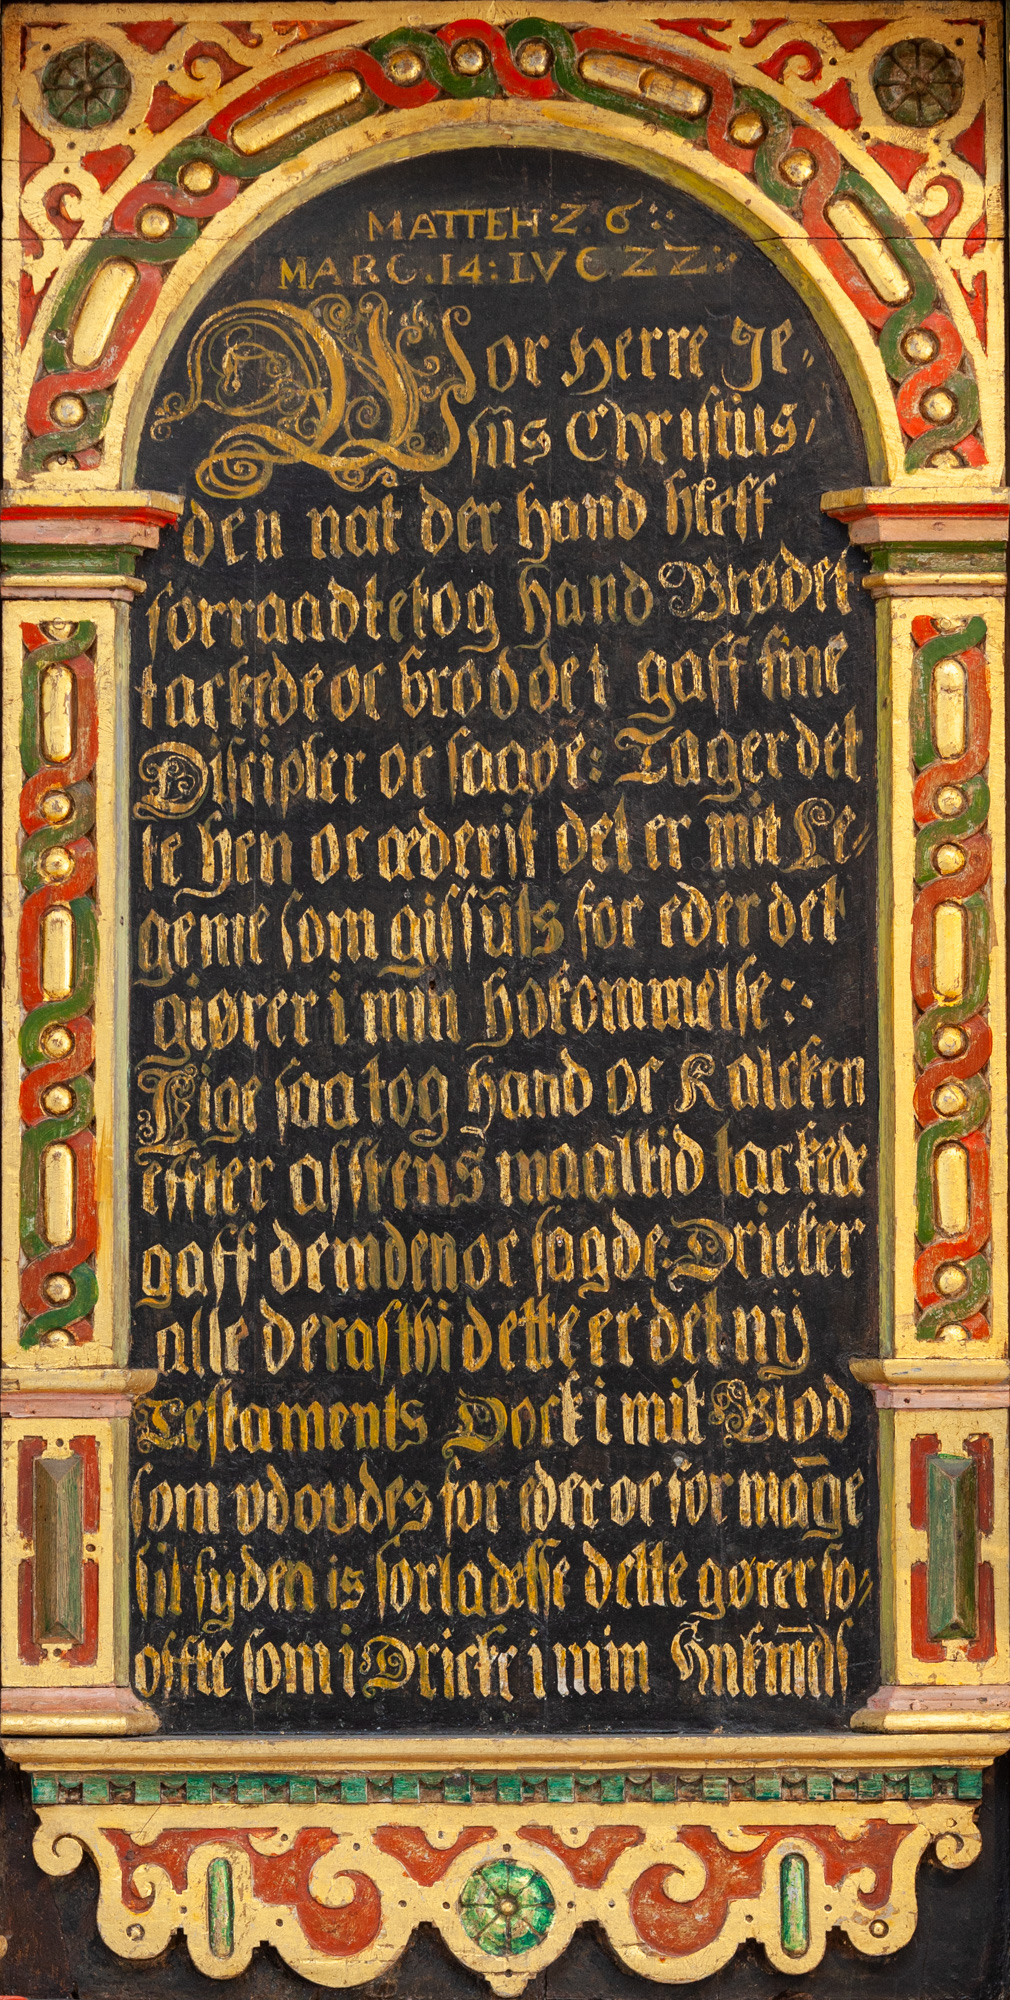 MATTEH · 26 :·:
MARC · 14 : LVC 22 :·:
Wor Herre Je-
süs Christüs /
den nat der hand bleff
forraadte tog hand Brødet
tackede oc brød det gaff sine
Discipler oc sagde : Tager det
te hen oc æderit det er mit Le-
geme som giffüts for eder det
giører i min hokommelse :·:
Lige saa tog hand oc Kalcken
effter afftens maaltid tackede
gaff dem den oc sagde : Dricker
alle der aff thi dette er det nij
Testaments Dock i mit Blod
som vdoudes for eder oc for māge
til syden is forladelse dette gører so-
offte som i Dricke i min